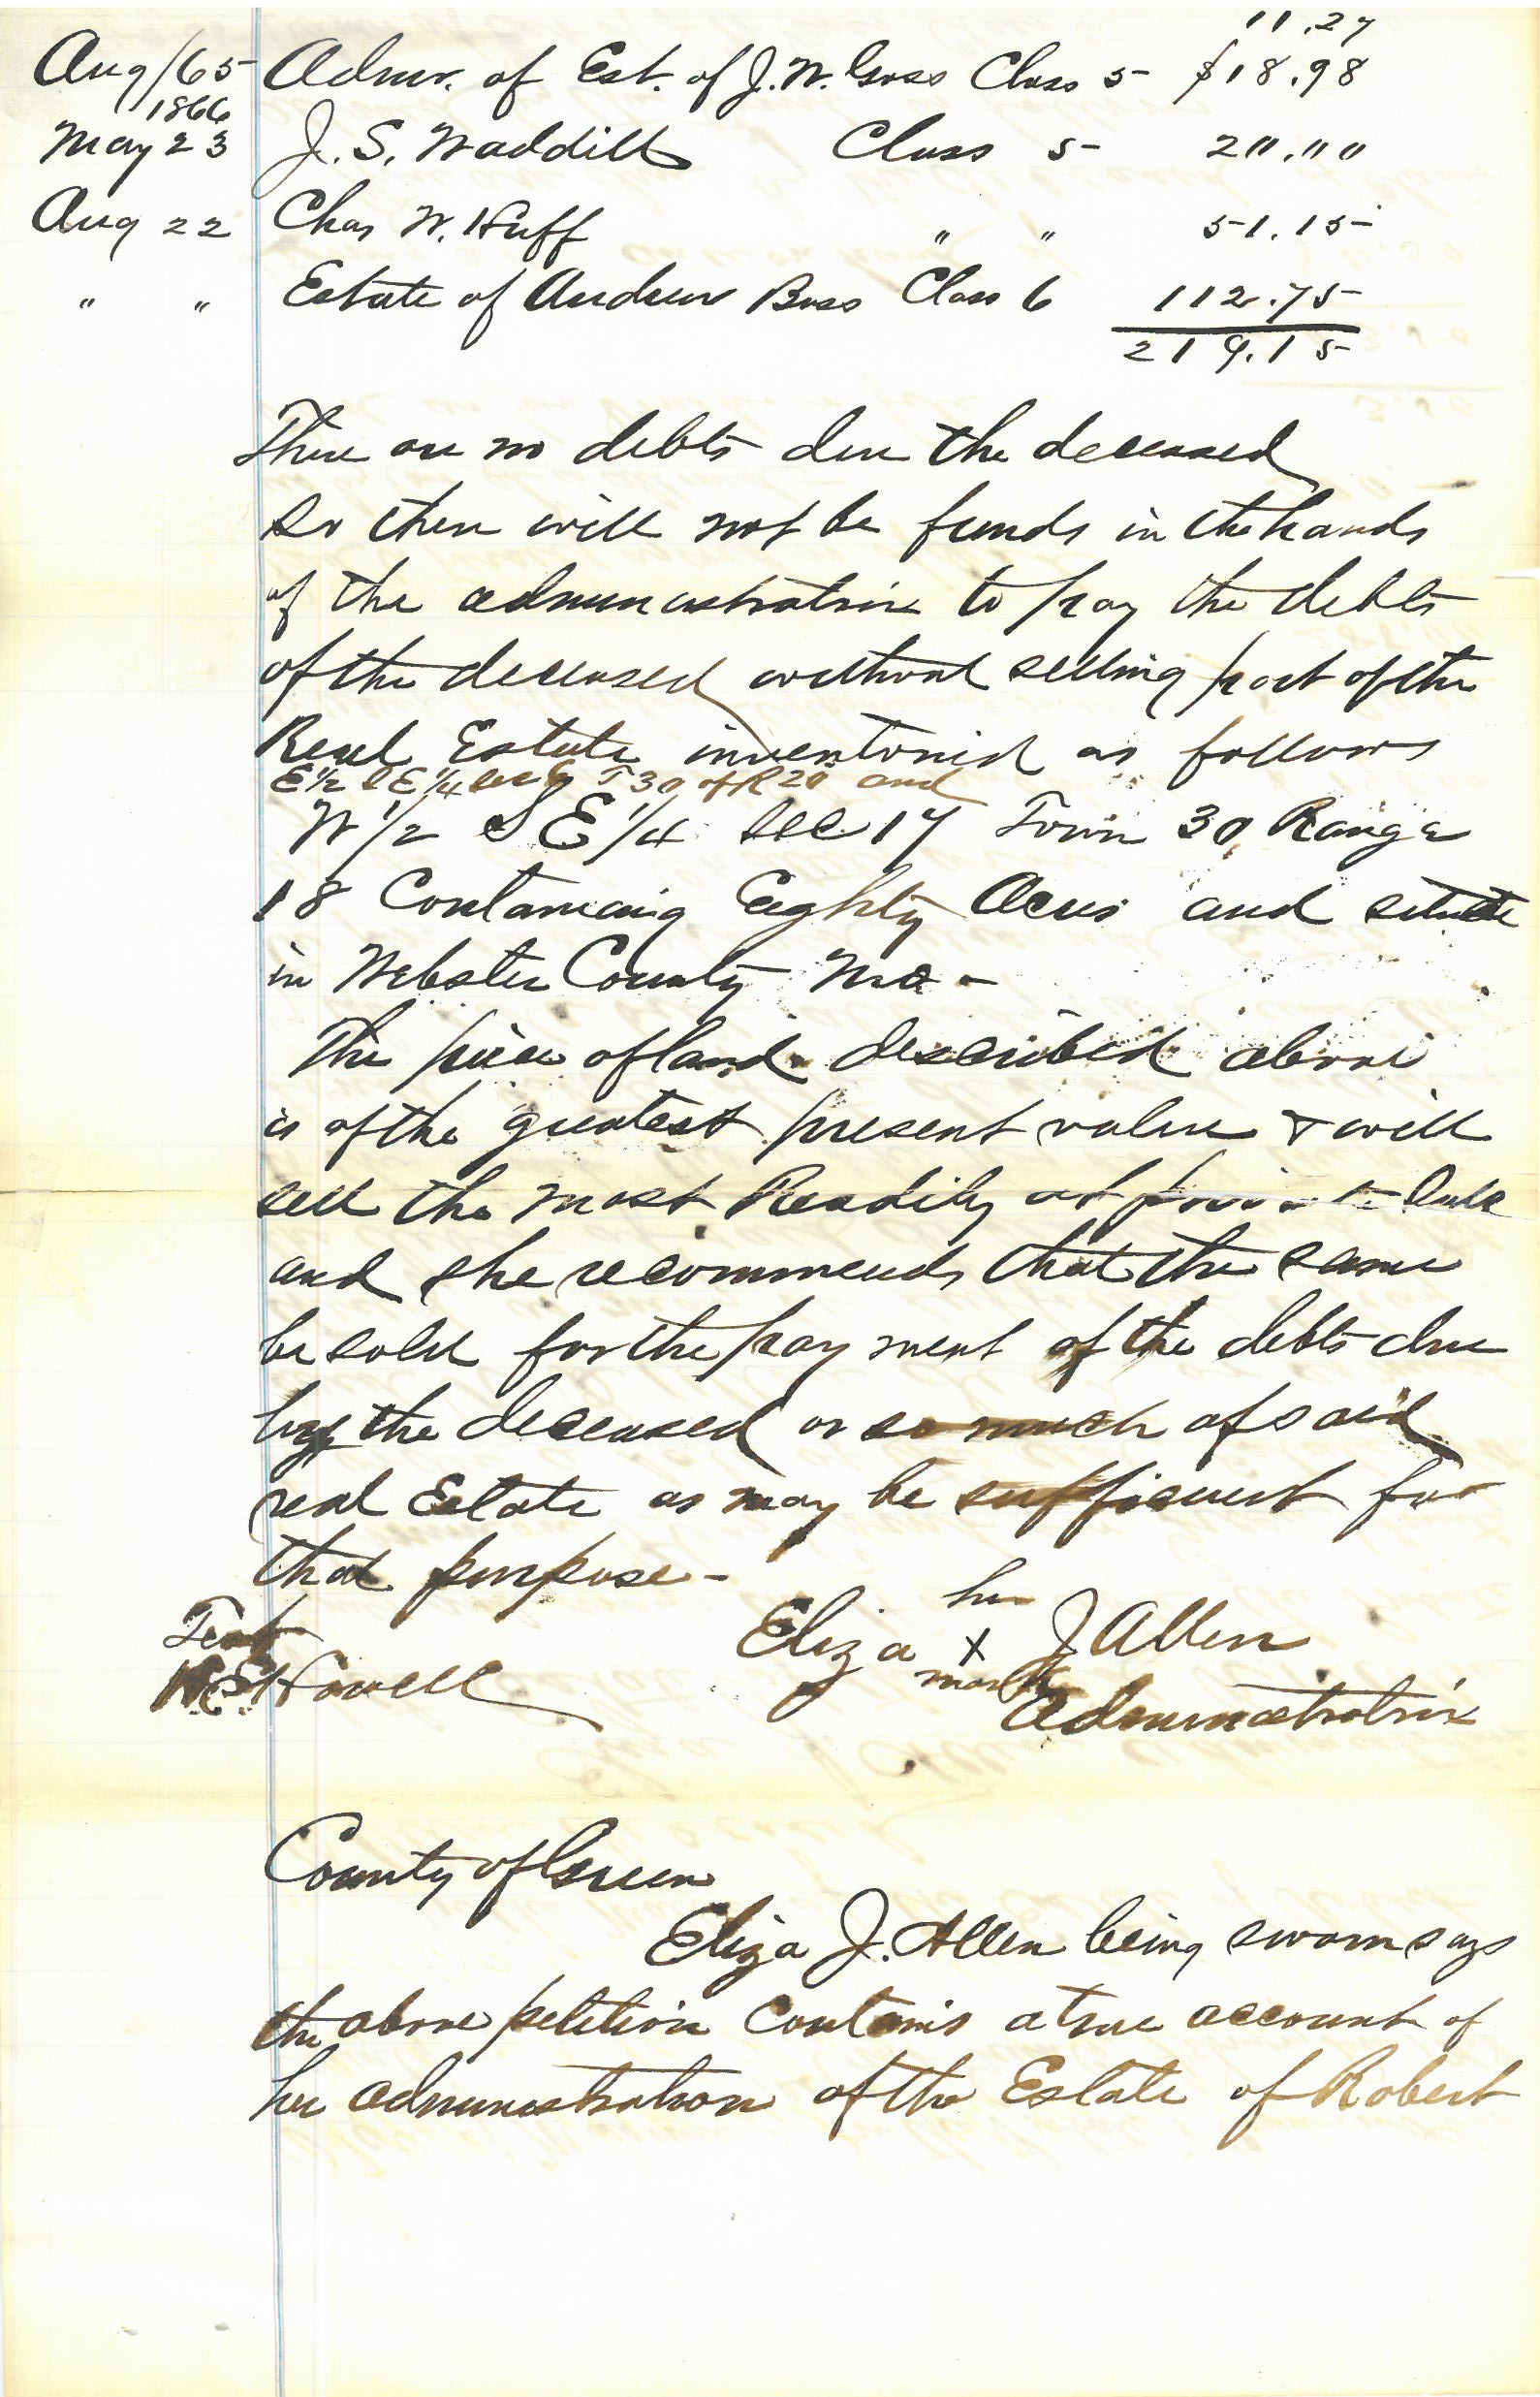 11.27
Aug/65 Admr. of Est. of J. W. Goss Class 5 $18.98
1866
May 23 J. S. Waddill Class 5 20.00
Aug 22 Chas W. Huff " " 51.15
" " Estate of Andrew Bass Class 6 112.75
219.15
There are no debts due the deceased
So there will not be funds in the hands
of the administratrix to pay the debts
of the deceased without selling part of the
Real Estate inventoried as follows
E 1/2 S E 1/4 Sec T 30 of R 20 and
W 1/2 S E 1/4 Sec 17 Town 30 Range
18 Containing Eighty Acres and situate
in Webster County Mo -
The piece of land described above
is of the greatest present value & will
sell the most Readily at private Sale
and she recommends that the same
be sold for the payment of the debts due
by the deceased or so much of said
real Estate as may be sufficient for
that purpose -
her
Eliza x J Allen
mark
Administratrix
Test
Howell
County of Green
Eliza J. Allen being sworn says
the above petition contains a true account of
her administration of the Estate of Robert